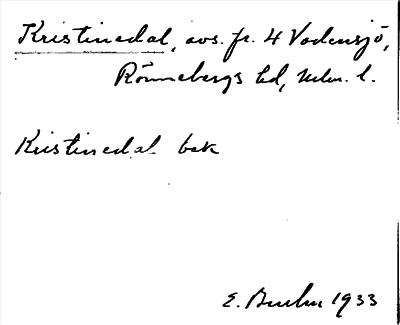 Kristinedal, avs. fr. 4 Vadensjö,
Rönnebergs hd, Mlm. l.
Kristinedal bek
E. 1933